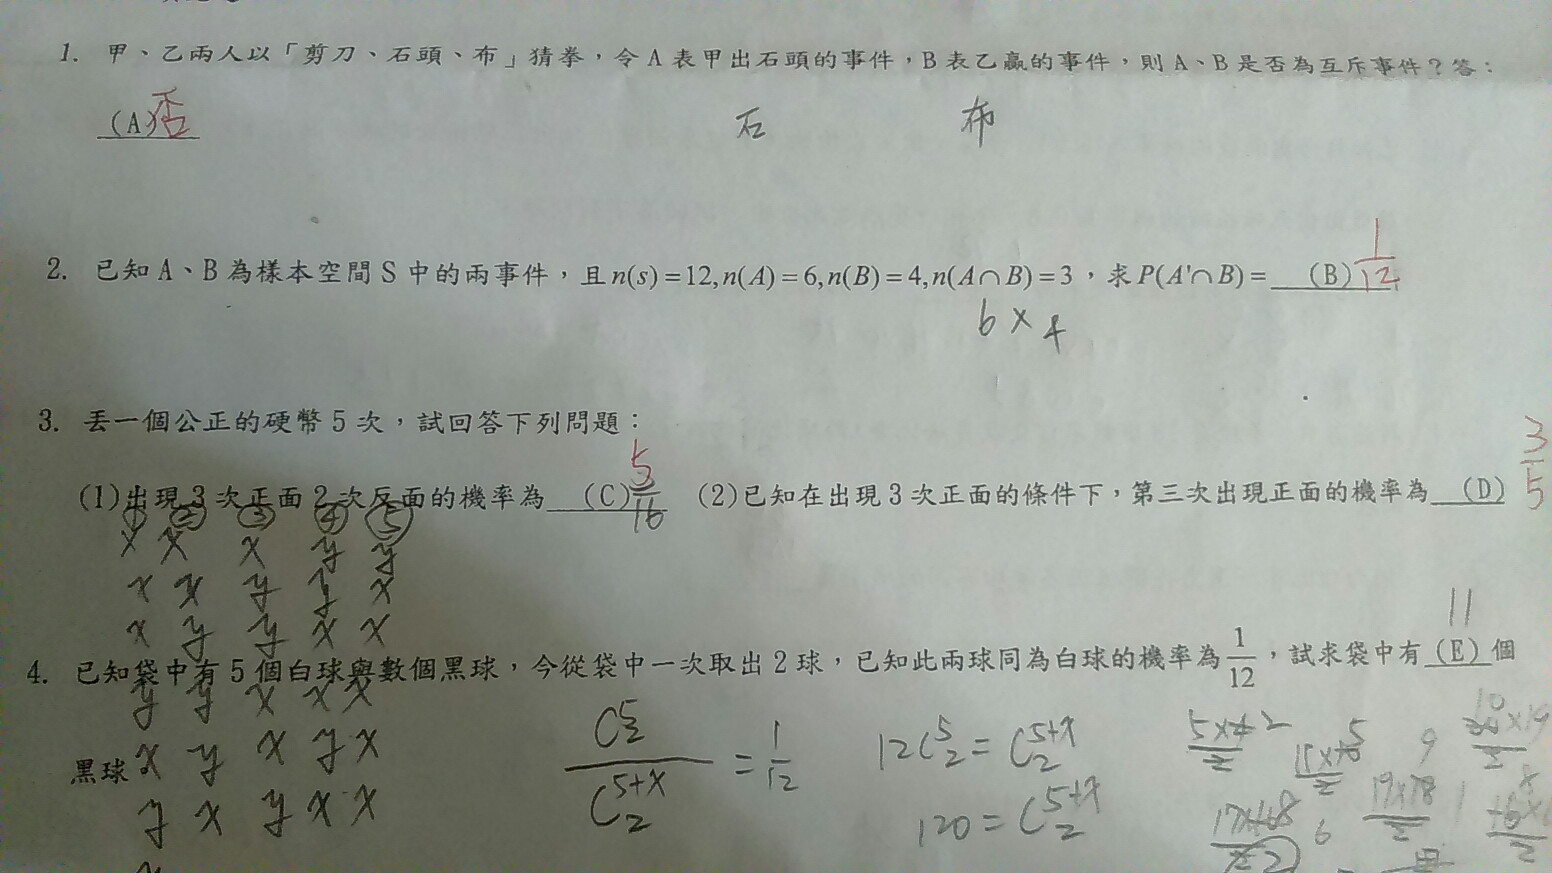 1. 甲、乙兩人以「剪刀、石頭、布」猜拳,令A表甲出石頭的事件,B表乙贏的事件,則A、B是否為互斥事件?答:
(A)否
石 布
2. 已知A、B為樣本空間S中的兩事件,且n(s)=12,n(A)=6,n(B)=4,n(A∩B)=3,求P(A'∩B)= (B) 1/12
6 × 4
3. 丟一個公正的硬幣5次,試回答下列問題:
(1)出現3次正面2次反面的機率為 (C) 5/16 (2)已知在出現3次正面的條件下,第三次出現正面的機率為 (D) 3/5
① ② ③ ④ ⑤
x x x y y
x x y y x
x y y x x
11
4. 已知袋中有5個白球與數個黑球,今從袋中一次取出2球,已知此兩球同為白球的機率為1/12,試求袋中有(E)個
y y x x x
黑球
x y x y x
y x y x x
C^5_2 / C^{5+x}_2 = 1/12
12C^5_2 = C^{5+x}_2
120 = C^{5+x}_2